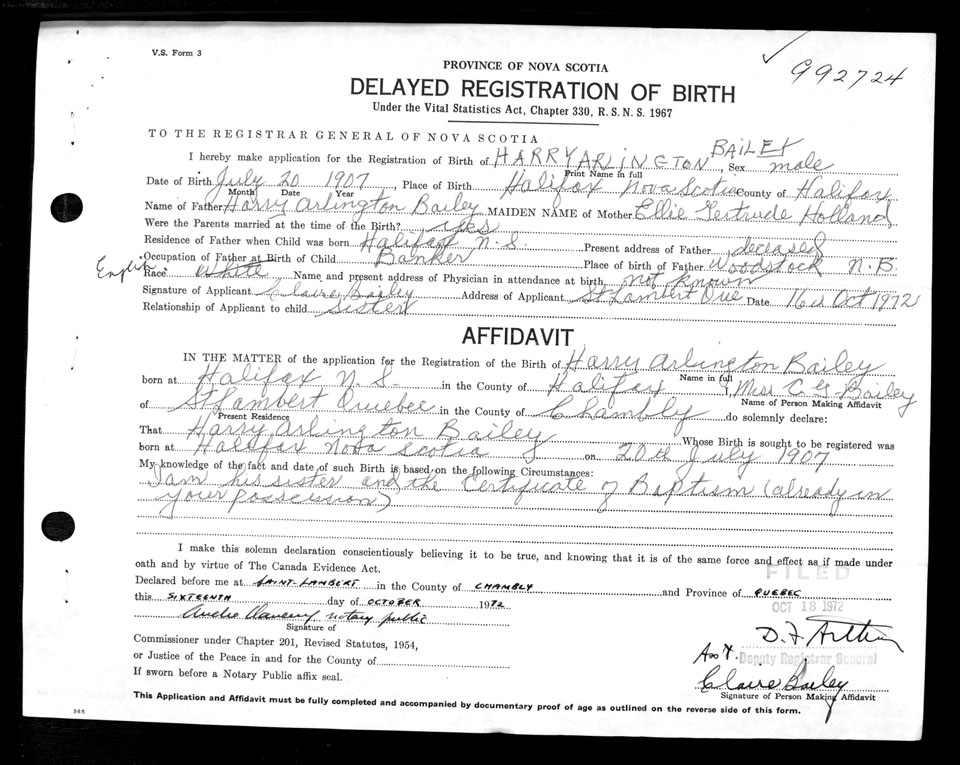 V.S. Form 3
992724
PROVINCE OF NOVA SCOTIA
DELAYED REGISTRATION OF BIRTH
Under the Vital Statistics Act, Chapter 330, R.S.N.S. 1967
TO THE REGISTRAR GENERAL OF NOVA SCOTIA
BAILEY
I hereby make application for the Registration of Birth of HARRY ARLINGTON, Sex male
Print Name in full
Date of Birth July 20 1907, Place of Birth Halifax Nova Scotia County of Halifax
Month Date Year
Name of Father Harry Arlington Bailey MAIDEN NAME of Mother Ellie Gertrude Holland
Were the Parents married at the time of the Birth? yes
Residence of Father when Child was born Halifax N.S. Present address of Father deceased
Occupation of Father at Birth of Child Banker Place of birth of Father Woodstock N.B.
English Race White Name and present address of Physician in attendance at birth, not known
Signature of Applicant Claire Bailey Address of Applicant St Lambert Que Date 16th Oct 1972
Relationship of Applicant to child Sister
AFFIDAVIT
IN THE MATTER of the application for the Registration of the Birth of Harry Arlington Bailey
Name in full
born at Halifax N.S. in the County of Halifax I, Miss C G Bailey
Name of Person Making Affidavit
of St Lambert Quebec in the County of Chambly do solemnly declare:
Present Residence
That Harry Arlington Bailey Whose Birth is sought to be registered was
born at Halifax Nova Scotia on 20th July 1907
My knowledge of the fact and date of such Birth is based on the following Circumstances:
I am his sister and the Certificate of Baptism (already in
your possession)
I make this solemn declaration conscientiously believing it to be true, and knowing that it is of the same force and effect as if made under
oath and by virtue of The Canada Evidence Act.
FILED
Declared before me at SAINT-LAMBERT in the County of CHAMBLY and Province of QUEBEC
this SIXTEENTH day of OCTOBER 1972
OCT 18 1972
notary public
Signature of
Commissioner under Chapter 201, Revised Statutes, 1954,
or Justice of the Peace in and for the County of
Ass't. Deputy Registrar General
If sworn before a Notary Public affix seal.
Claire Bailey
Signature of Person Making Affidavit
This Application and Affidavit must be fully completed and accompanied by documentary proof of age as outlined on the reverse side of this form.
385